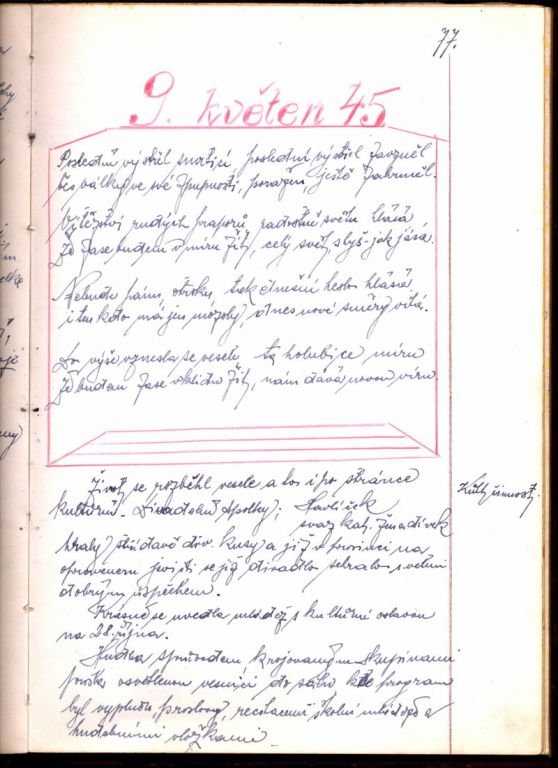 77.
9. květen 45
Poslední výstřel smrtící, poslední výstřel zazněl
běs války ve své zpupnosti, poražen, ještě zahřměl.
Vítězství rudých praporů, radostně světu hlásá
že zase budem v míru žíti, celý svět, slyš-jak jásá.
Nebude pánů, otroků, tak dnešní heslo hlásá
i ten kdo má jen mozoly, dnes nové směry vítá.
Do výše vznesla se vesele, ta holubice míru
že budem zase v klidu žíti, nám dává novou víru.
Život se rozběhl vesele a to i po stránce
kulturní. Divadelní spolky; Havlíček
svaz kat. žen a dívek
Kult. činnost.
hrály střídavě div. kusy a již v prosinci na
opraveném jevišti se již divadlo sehrálo s velmi
dobrým úspěchem.
Krásně se uvedla mládež s kulturní oslavou
na 28. října.
Hudba zprůvodem krojovanými skupinami
prošla osvětlenou vesnicí do sálu kde program
byl vyplněn proslovy, recitacemi školní mládeže a
hudebními vložkami.